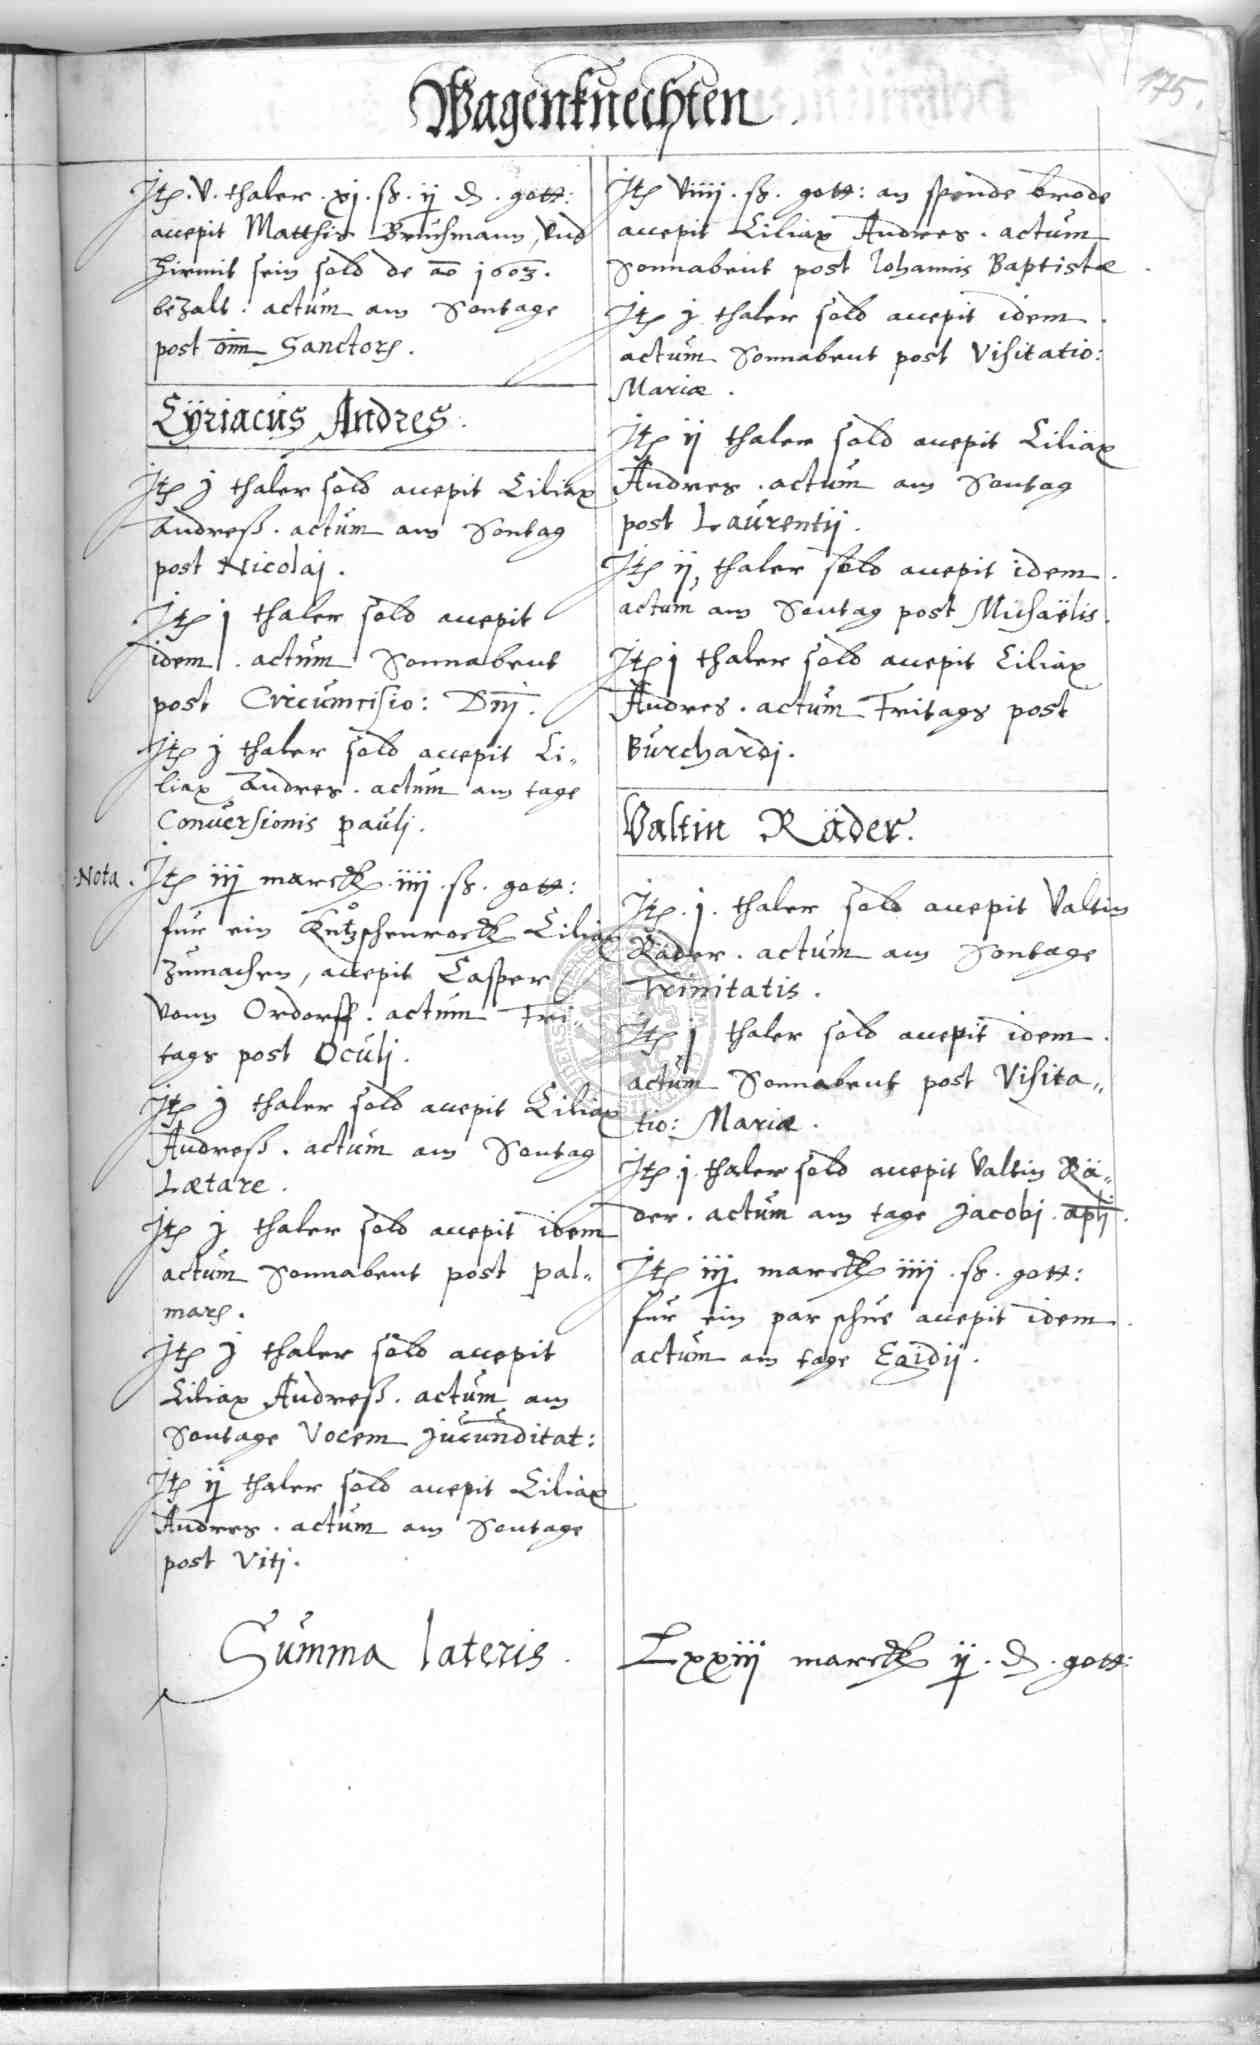 175.
Wagenknechten.
Itē. v. thaler. xj. sz. ij d. gott:
accepit Matthis Bruhmann, vnd
hirmit sein sold de ao 1603.
bezalt. actum am Sontage
post omm Sanctorū.
Cÿriacus Andres.
Itē j thaler sold accepit Ciliax
Andreß. actum am Sontag
post Nicolaj.
Itē j thaler sold accepit
idem. actum Sonnabent
post Circumcisio: Dnj.
Itē j thaler sold accepit Ci„
liax Andres. actum am tage
Conversionis paulj.
Nota. Itē iij marck. iiij. sz. gott:
für ein Kutzschenrock Ciliax
Zumachen, accepit Casper
vonn Ordorff. actum Fri„
tags post Oculj.
Itē j thaler sold accepit Ciliax
Andreß. actum am Sontag
Lætare.
Itē j thaler sold accepit idem
actum Sonnabent post pal„
marū.
Itē j thaler sold accepit
Ciliax Andreß. actum am
Sontage Vocem Jucunditat:
Itē ij thaler sold accepit Ciliax
Andres. actum am Sontage
post Vitj.
Itē viiij. sz. gott: an spende brode
accepit Ciliax Andres. actum
Sonnabent post Iohannis Baptistæ.
Itē j thaler sold accepit idem.
actum Sonnabent post Visitatio:
Mariæ.
Itē ij thaler sold accepit Ciliax
Andres. actum am Sontag
post Laurentij.
Itē ij, thaler sold accepit idem.
actum am Sontag post Michaëlis.
Itē j thaler sold accepit Ciliax
Andres. actum Fritags post
Burchardj.
Valtin Räder.
Itē. j. thaler sold accepit Valtin
Räder. actum am Sontage
Trinitatis.
Itē j thaler sold accepit idem.
actum Sonnabent post Visita„
tio: Mariæ.
Itē. j. thaler sold accepit Valtin Rä„
der. actum am tage Jacobj. aplj.
Itē iij marck iiij. sz. gott:
für ein par schue accepit idem.
actum am tage Egidij.
Summa lateris. Lxxiij marck ij. d. gott: